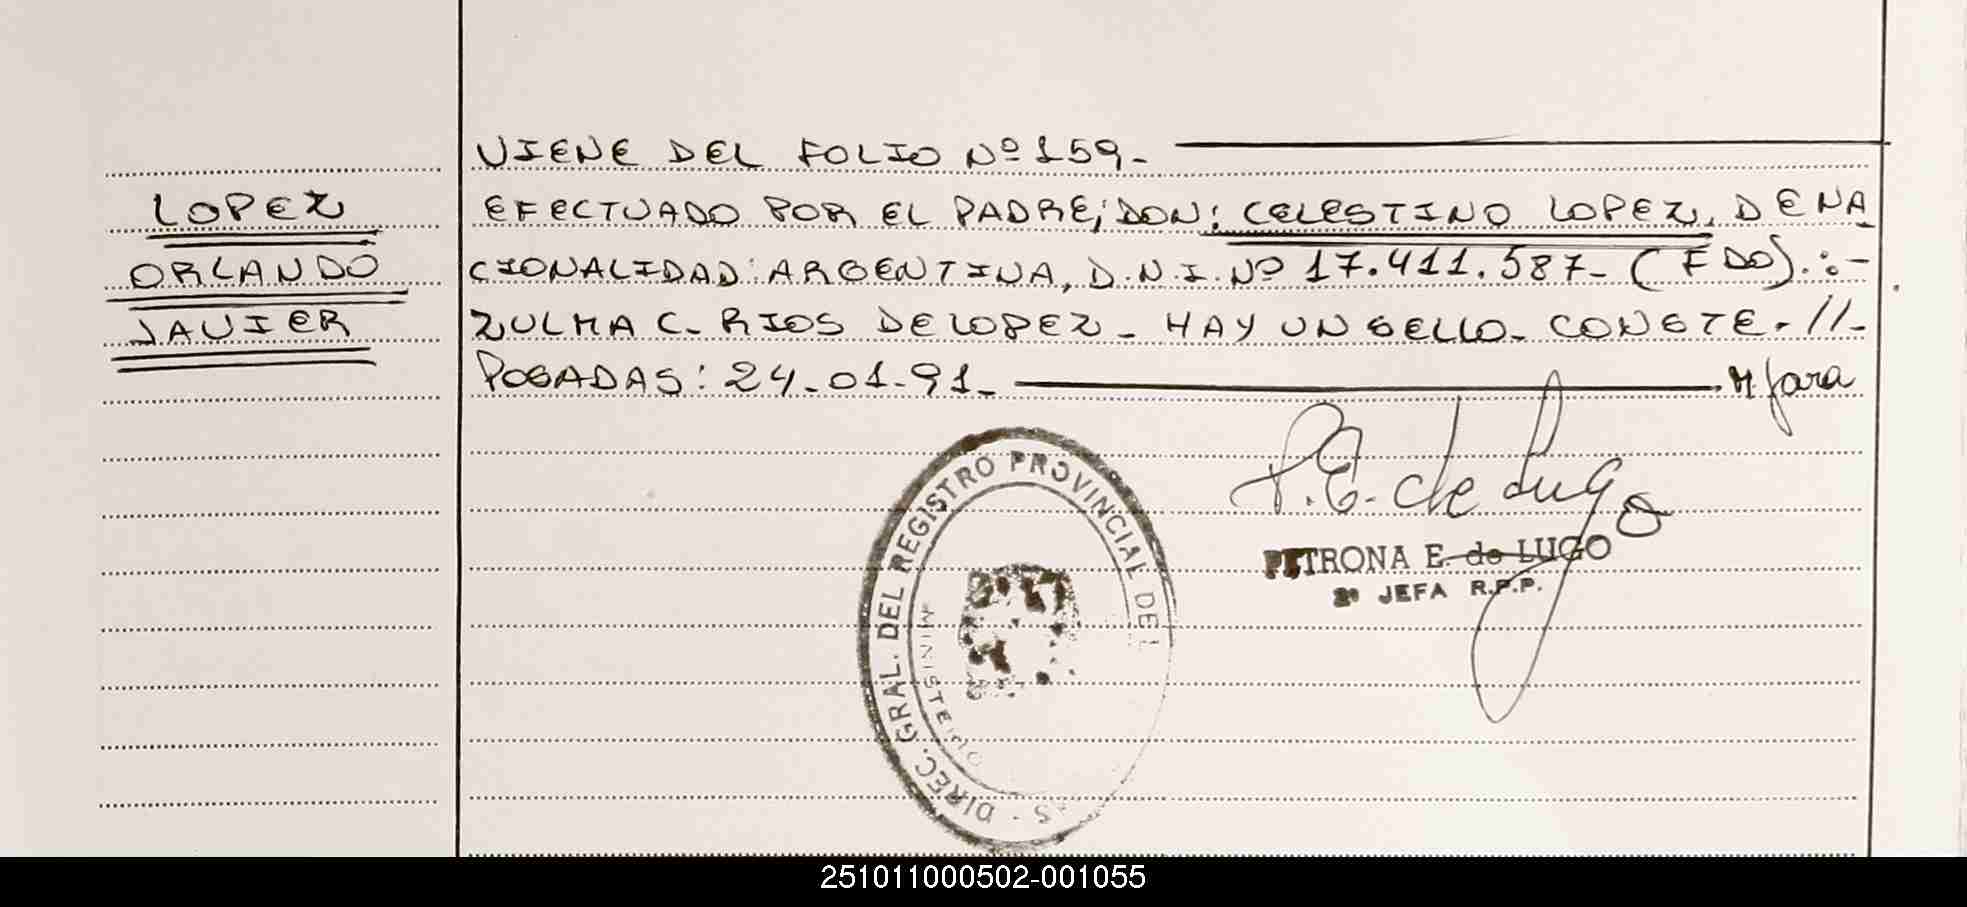 VIENE DEL FOLIO Nº 159.-
LOPEZ
ORLANDO
JAVIER
EFECTUADO POR EL PADRE; DON: CELESTINO LOPEZ, DE NA
CIONALIDAD: ARGENTINA, D.N.I. Nº 17.411.587- (FDO).:-
ZULMA C. RIOS DE LOPEZ - HAY UN SELLO - CONSTE.//-
POSADAS: 24-01-91-
P.E. de Lugo
PETRONA E. de LUGO
2º JEFA R.P.P.
DIREC. GRAL. DEL REGISTRO PROVINCIAL DE
MINISTERIO
251011000502-001055